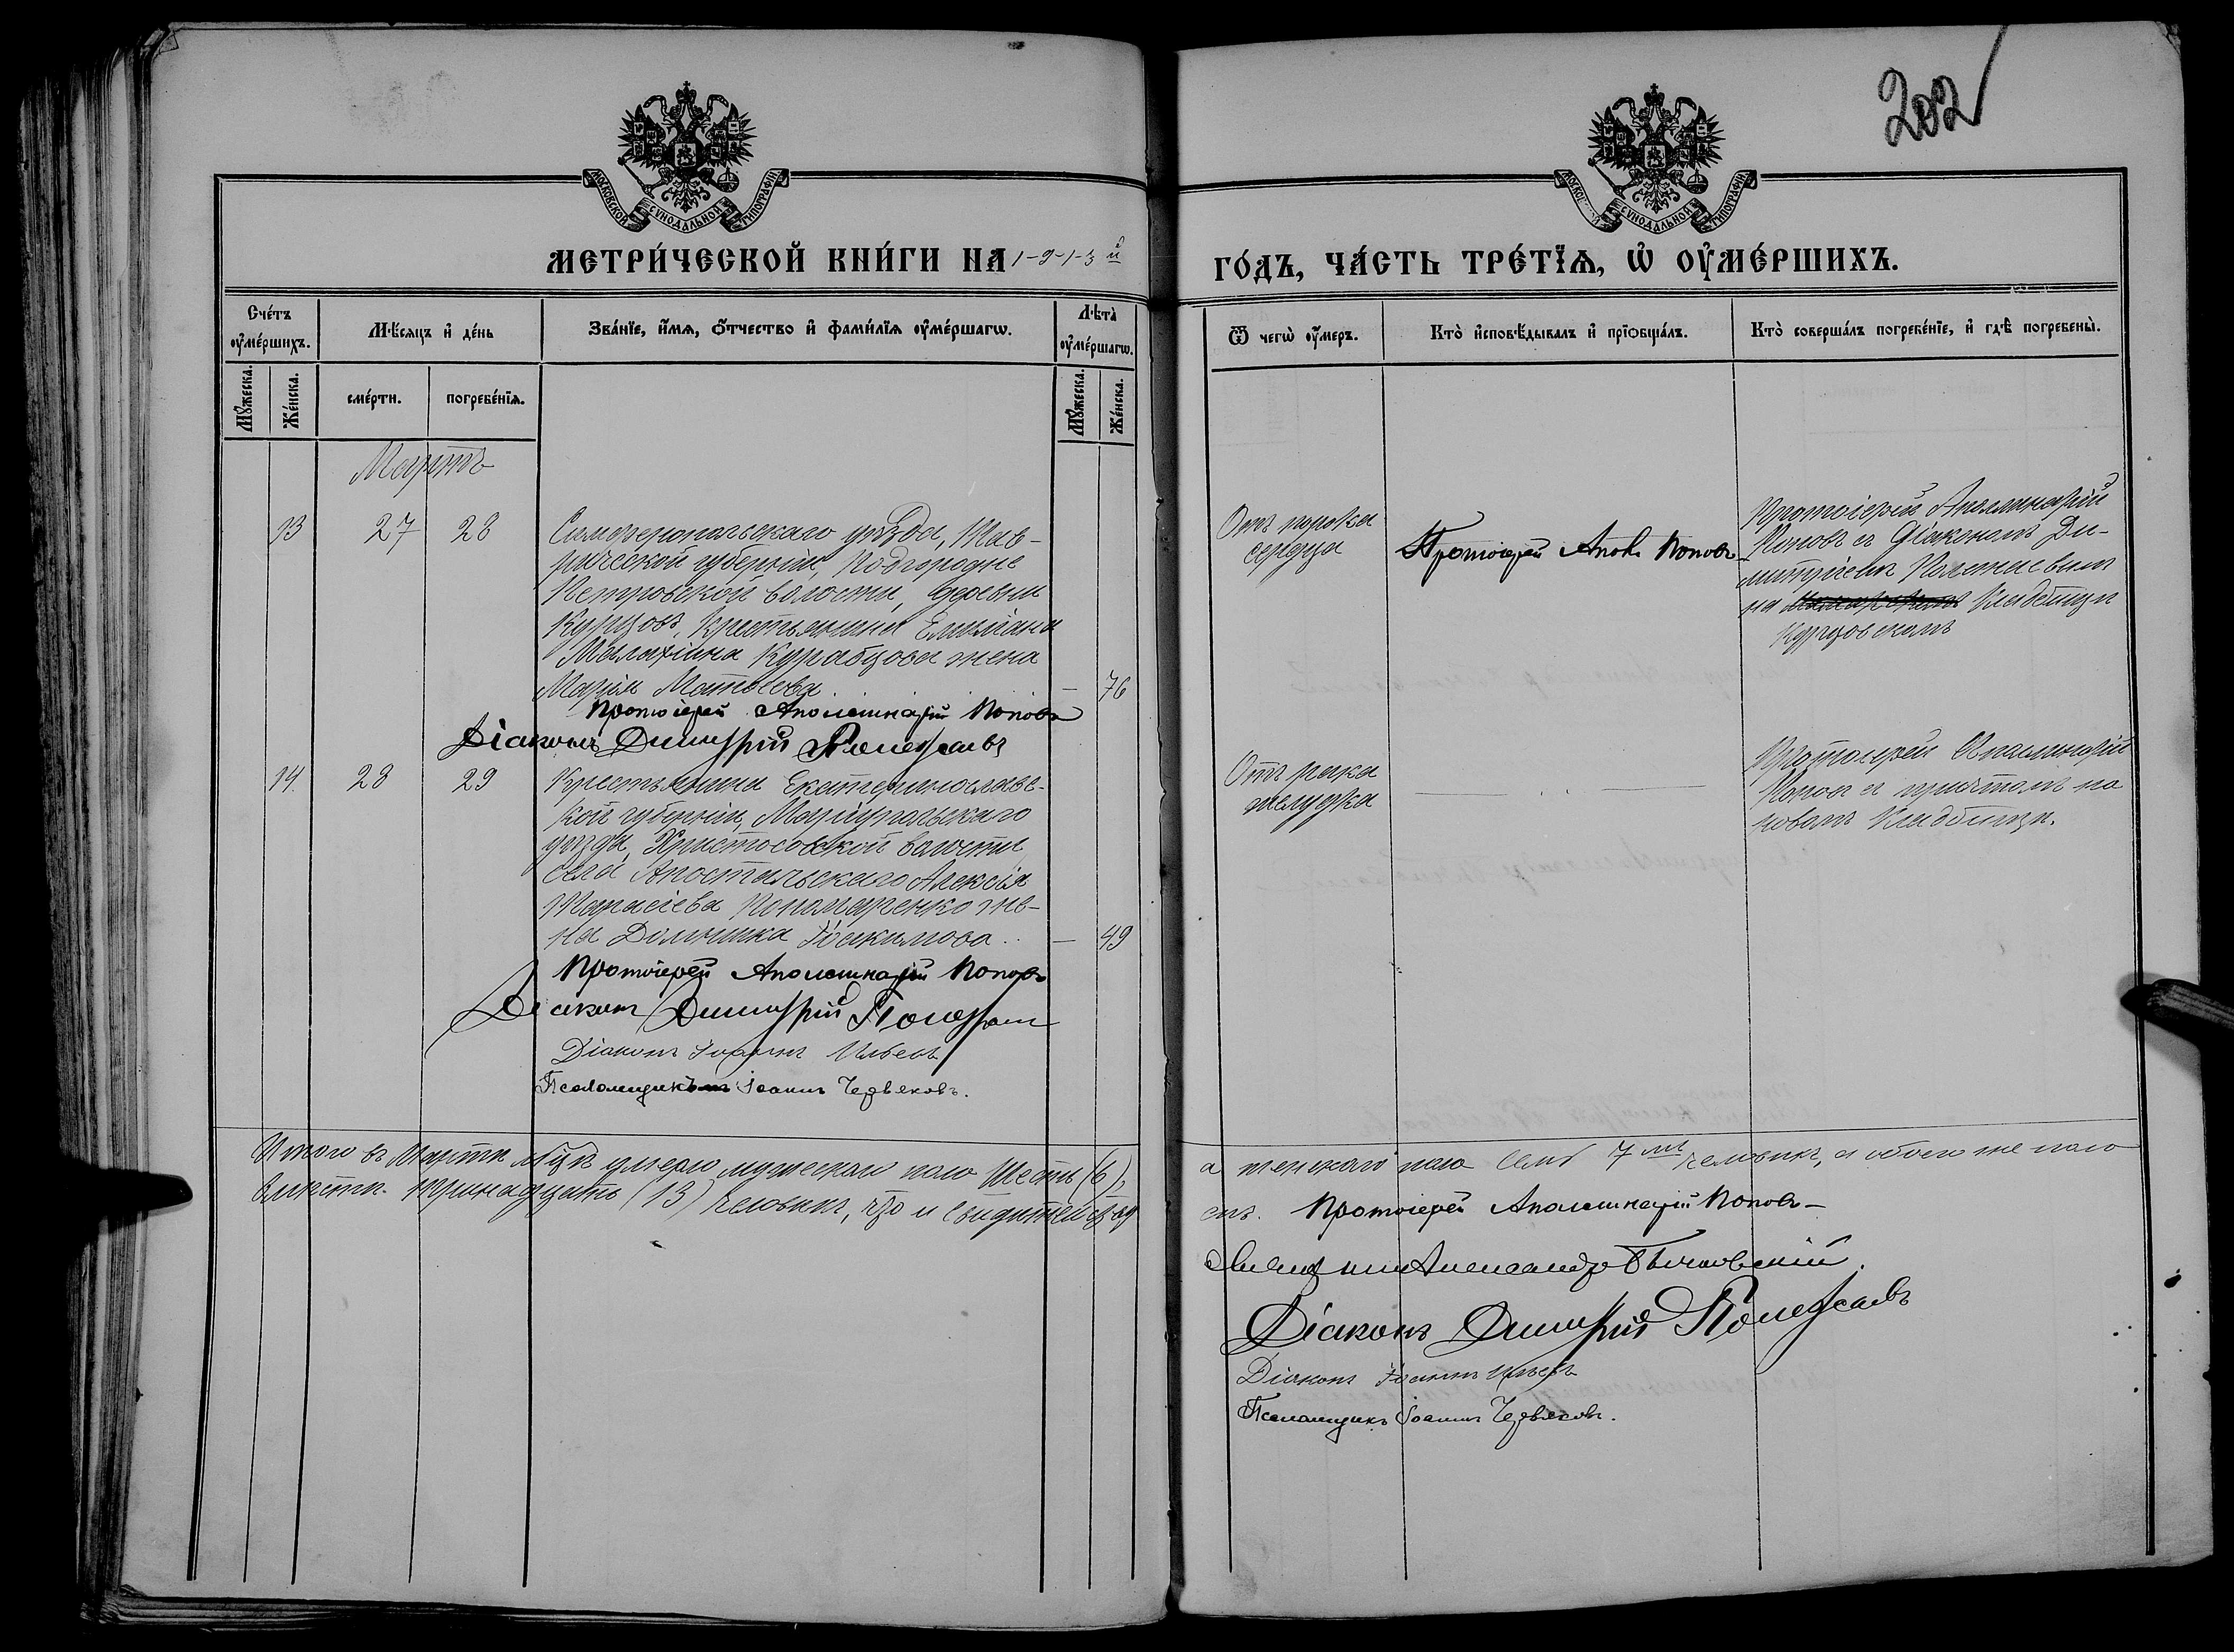 202
МОСКОВСКОЙ СѴНОДАЛЬНОЙ ТИПОГРАФІИ
МОСКОВСКОЙ СѴНОДАЛЬНОЙ ТИПОГРАФІИ
МЕТРИ́ЧЕСКОЙ КНИ́ГИ НА 1-9-1-3й
ГО́ДЪ, ЧА́СТЬ ТРЕ́ТЇѦ, Ѡ҆ ОУ҆МЕ́РШИХЪ.
Сче́тъ оу҆ме́ршихъ.
Мѣ́сяцъ и҆ де́нь
Зва́нїе, и҆́мѧ, о҆́тчество и҆ фами́лїѧ оу҆ме́ршагѡ.
Лѣ́та оу҆ме́ршагѡ.
Мꙋ́жеска.
Же́нска.
сме́рти.
погребе́нїѧ.
Мꙋ́жеска.
Же́нска.
Ѿ чегѡ̀ оу҆́меръ.
Кто̀ и҆сповѣ́дывалъ и҆ прїѡбща́лъ.
Кто̀ соверша́лъ погребе́нїе, и҆ гдѣ̀ погребены̀.
Мартъ
13 27 28 Симферопольскаго уѣзда, Тав-
рической губерніи, Подгородне
Петровской волости, деревни
Курцовъ, крестьянина Емиліана
Малахіина Курабцова жена
Марія Матѳеева. — 76
Протоіерей Аполлинарій Поповъ
Діаконъ Димитрій
Отъ порока
сердца
Протоіерей Апол. Поповъ
Протоіерей Аполлинарій
Поповъ съ Діакономъ Ди-
митріемъ
на кладбищѣ
Курцовскомъ
14. 28 29 Крестьянина Екатеринославс-
кой губерніи, Маріупольскаго
уѣзда, Христосовской волости
села Апостольскаго Алексѣя
Тарасіева Пономаренко же-
на Домника Іоакимова.. — 49
Протоіерей Аполлинарій Поповъ
Діаконъ Димитрій
Діаконъ Іоаннъ
Псаломщикъ Іоаннъ Червяковъ.
Отъ рака
желудка
Протоіерей Аполлинарій
Поповъ съ причтомъ на
новомъ кладбищѣ.
Итого въ Мартѣ м-цѣ умерло мужескаго пола Шесть (6),
а женскаго пола семь 7мь человѣкъ, а обоего же пола
вмѣстѣ тринадцать (13) человѣкъ, что и свидѣтельству-
емъ. Протоіерей Аполлинарій Поповъ
Александръ
Діаконъ Димитрій
Діаконъ Іоаннъ
Псаломщикъ Іоаннъ Червяковъ.